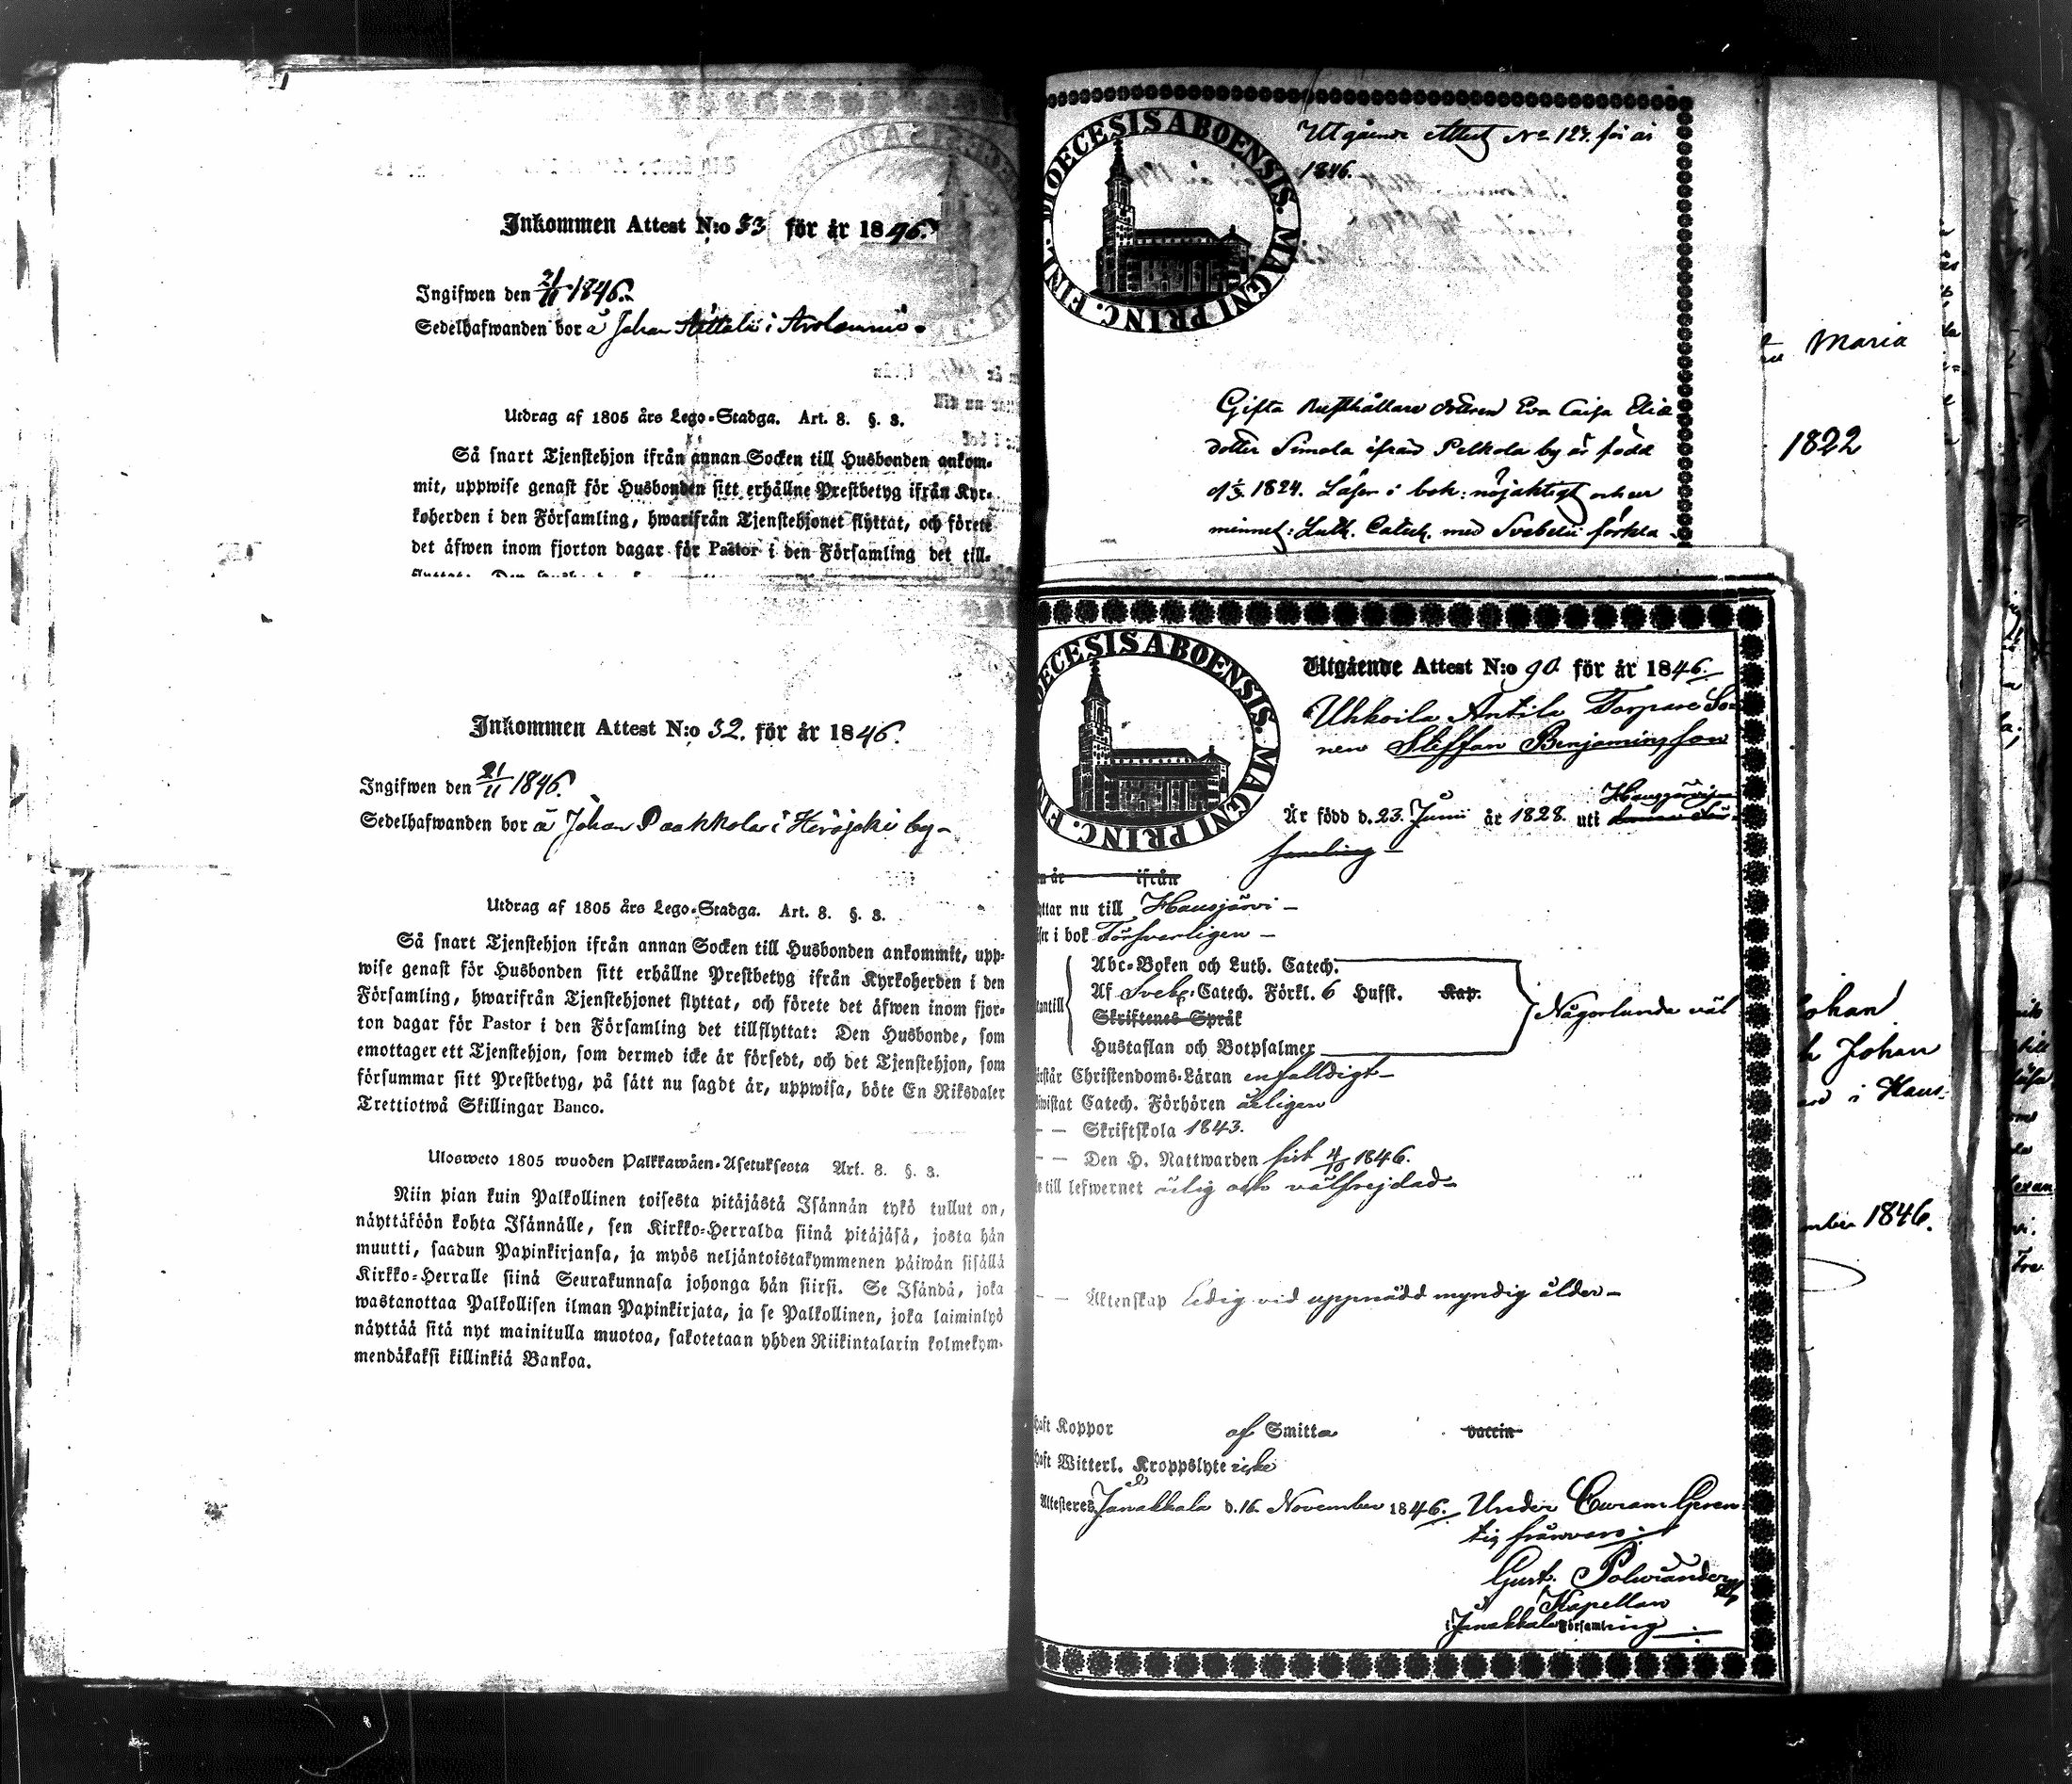 Inkommen Attest N:o 33 för år 1846.
Ingifwen den 21/11 1846.
Sedelhafwanden bor å Johan i
Utdrag af 1805 års Lego-Stadga. Art. 8. §. 3.
Så snart Tjenstehjon ifrån annan Socken till Husbonden ankom-
mit, uppwise genast för Husbonden sitt erhållne Prestbetyg ifrån Kyr-
koherden i den Församling, hwarifrån Tjenstehjonet flyttat, och förete
det äfwen inom fjorton dagar för Pastor i den Församling det till-
Inkommen Attest N:o 32. för år 1846.
Ingifwen den 21/11 1846.
Sedelhafwanden bor å Johan Paakkola i Hirwijoki by
Utdrag af 1805 års Lego-Stadga. Art. 8. §. 3.
Så snart Tjenstehjon ifrån annan Socken till Husbonden ankommit, upp-
wise genast för Husbonden sitt erhållne Prestbetyg ifrån Kyrkoherden i den
Församling, hwarifrån Tjenstehjonet flyttat, och förete det äfwen inom fjor-
ton dagar för Pastor i den Församling det tillflyttat: Den Husbonde, som
emottager ett Tjenstehjon, som dermed icke är försedt, och det Tjenstehjon, som
försummar sitt Prestbetyg, på sätt nu sagdt är, uppwisa, böte En Riksdaler
Trettiotwå Skillingar Banco.
Ulosweto 1805 wuoden Palkkawäen-Asetuksesta Art. 8. §. 3.
Niin pian kuin Palkollinen toisesta pitäjästä Isännän tykö tullut on,
näyttäköön kohta Isännälle, sen Kirkko-Herralda siinä pitäjäsä, josta hän
muutti, saadun Papinkirjansa, ja myös neljäntoistakymmenen päiwän sisällä
Kirkko-Herralle siinä Seurakunnasa johonga hän siirsi. Se Isändä, joka
wastanottaa Palkollisen ilman Papinkirjata, ja se Palkollinen, joka laiminlyö
näyttää sitä nyt mainitulla muotoa, sakotetaan yhden Riikintalarin kolmekym-
mendäkaksi killinkiä Bankoa.
DIOECESIS ABOENSIS. MAGNI PRINC. FINL.
Utgående Attest No 127. för år
1846.
Gifta Rusthållare dottren Eva Caisa Elias
dotter Simola ifrån Pelkola by är född
d. 1824. Läser i bok: nöjaktigt och ur
minnet: Luth. Catech. med Svebelii förkla
DIOECESIS ABOENSIS. MAGNI PRINC. FIN
Utgående Attest N:o 90 för år 1846.
Uhkoila Antila Torpare So-
nen Steffan Benjaminsson
Är född d. 23. Juni år 1828. uti Hausjärvi
samling
år ifrån
yttar nu till Hausjärvi
i bok Försvarligen
Abc-Boken och Luth. Catech.
Af Sveb. Catech. Förkl. 6 Hufst. Kap.
Skriftenes Språk
Hustaflan och Botpsalmer
Någorlunda väl
rstår Christendoms-Läran enfalldigt
wistat Catech. Förhören årligen
Skriftskola 1843.
Den H. Nattwarden sist 4/10 1846.
till lefwernet ärlig och välfrejdad
Äktenskap Ledig vid uppnådd myndig ålder
haft Koppor af Smitta vaccin
haft Witterl. Kroppslyte icke
Attesteres Janakkala d. 16. November 1846. Under Curam Geren-
tis frånvaro
Gust. Polwiander
Kapellan
i Janakkala Församling
Maria
1822
Johan
Johan
i Haus-
mber 1846.